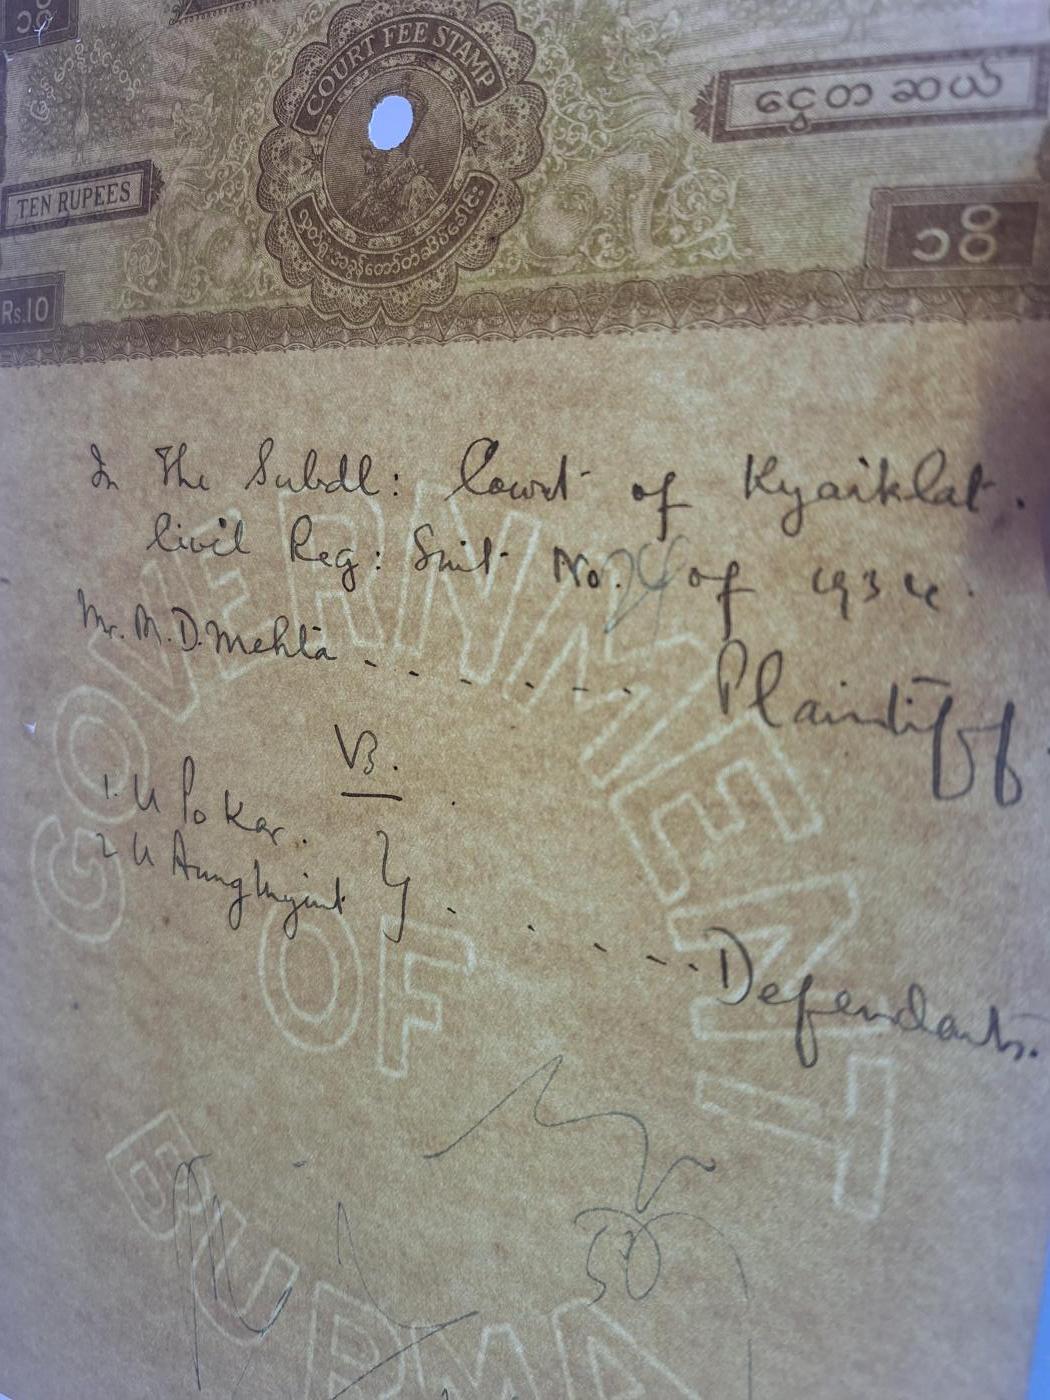 COURT FEE STAMP
ငွေတဆယ်
TEN RUPEES
၁၀ိ
Rs.10
In The Subdl: Court of Kyaiklat.
Civil Reg: Suit No. of 1934.
Mr. M.D. Mehta ...... Plaintiff
Vs.
1. U Po Kar.
2 U Aung Myint } ..... Defendants.
GOVERNMENT
OF
BURMA